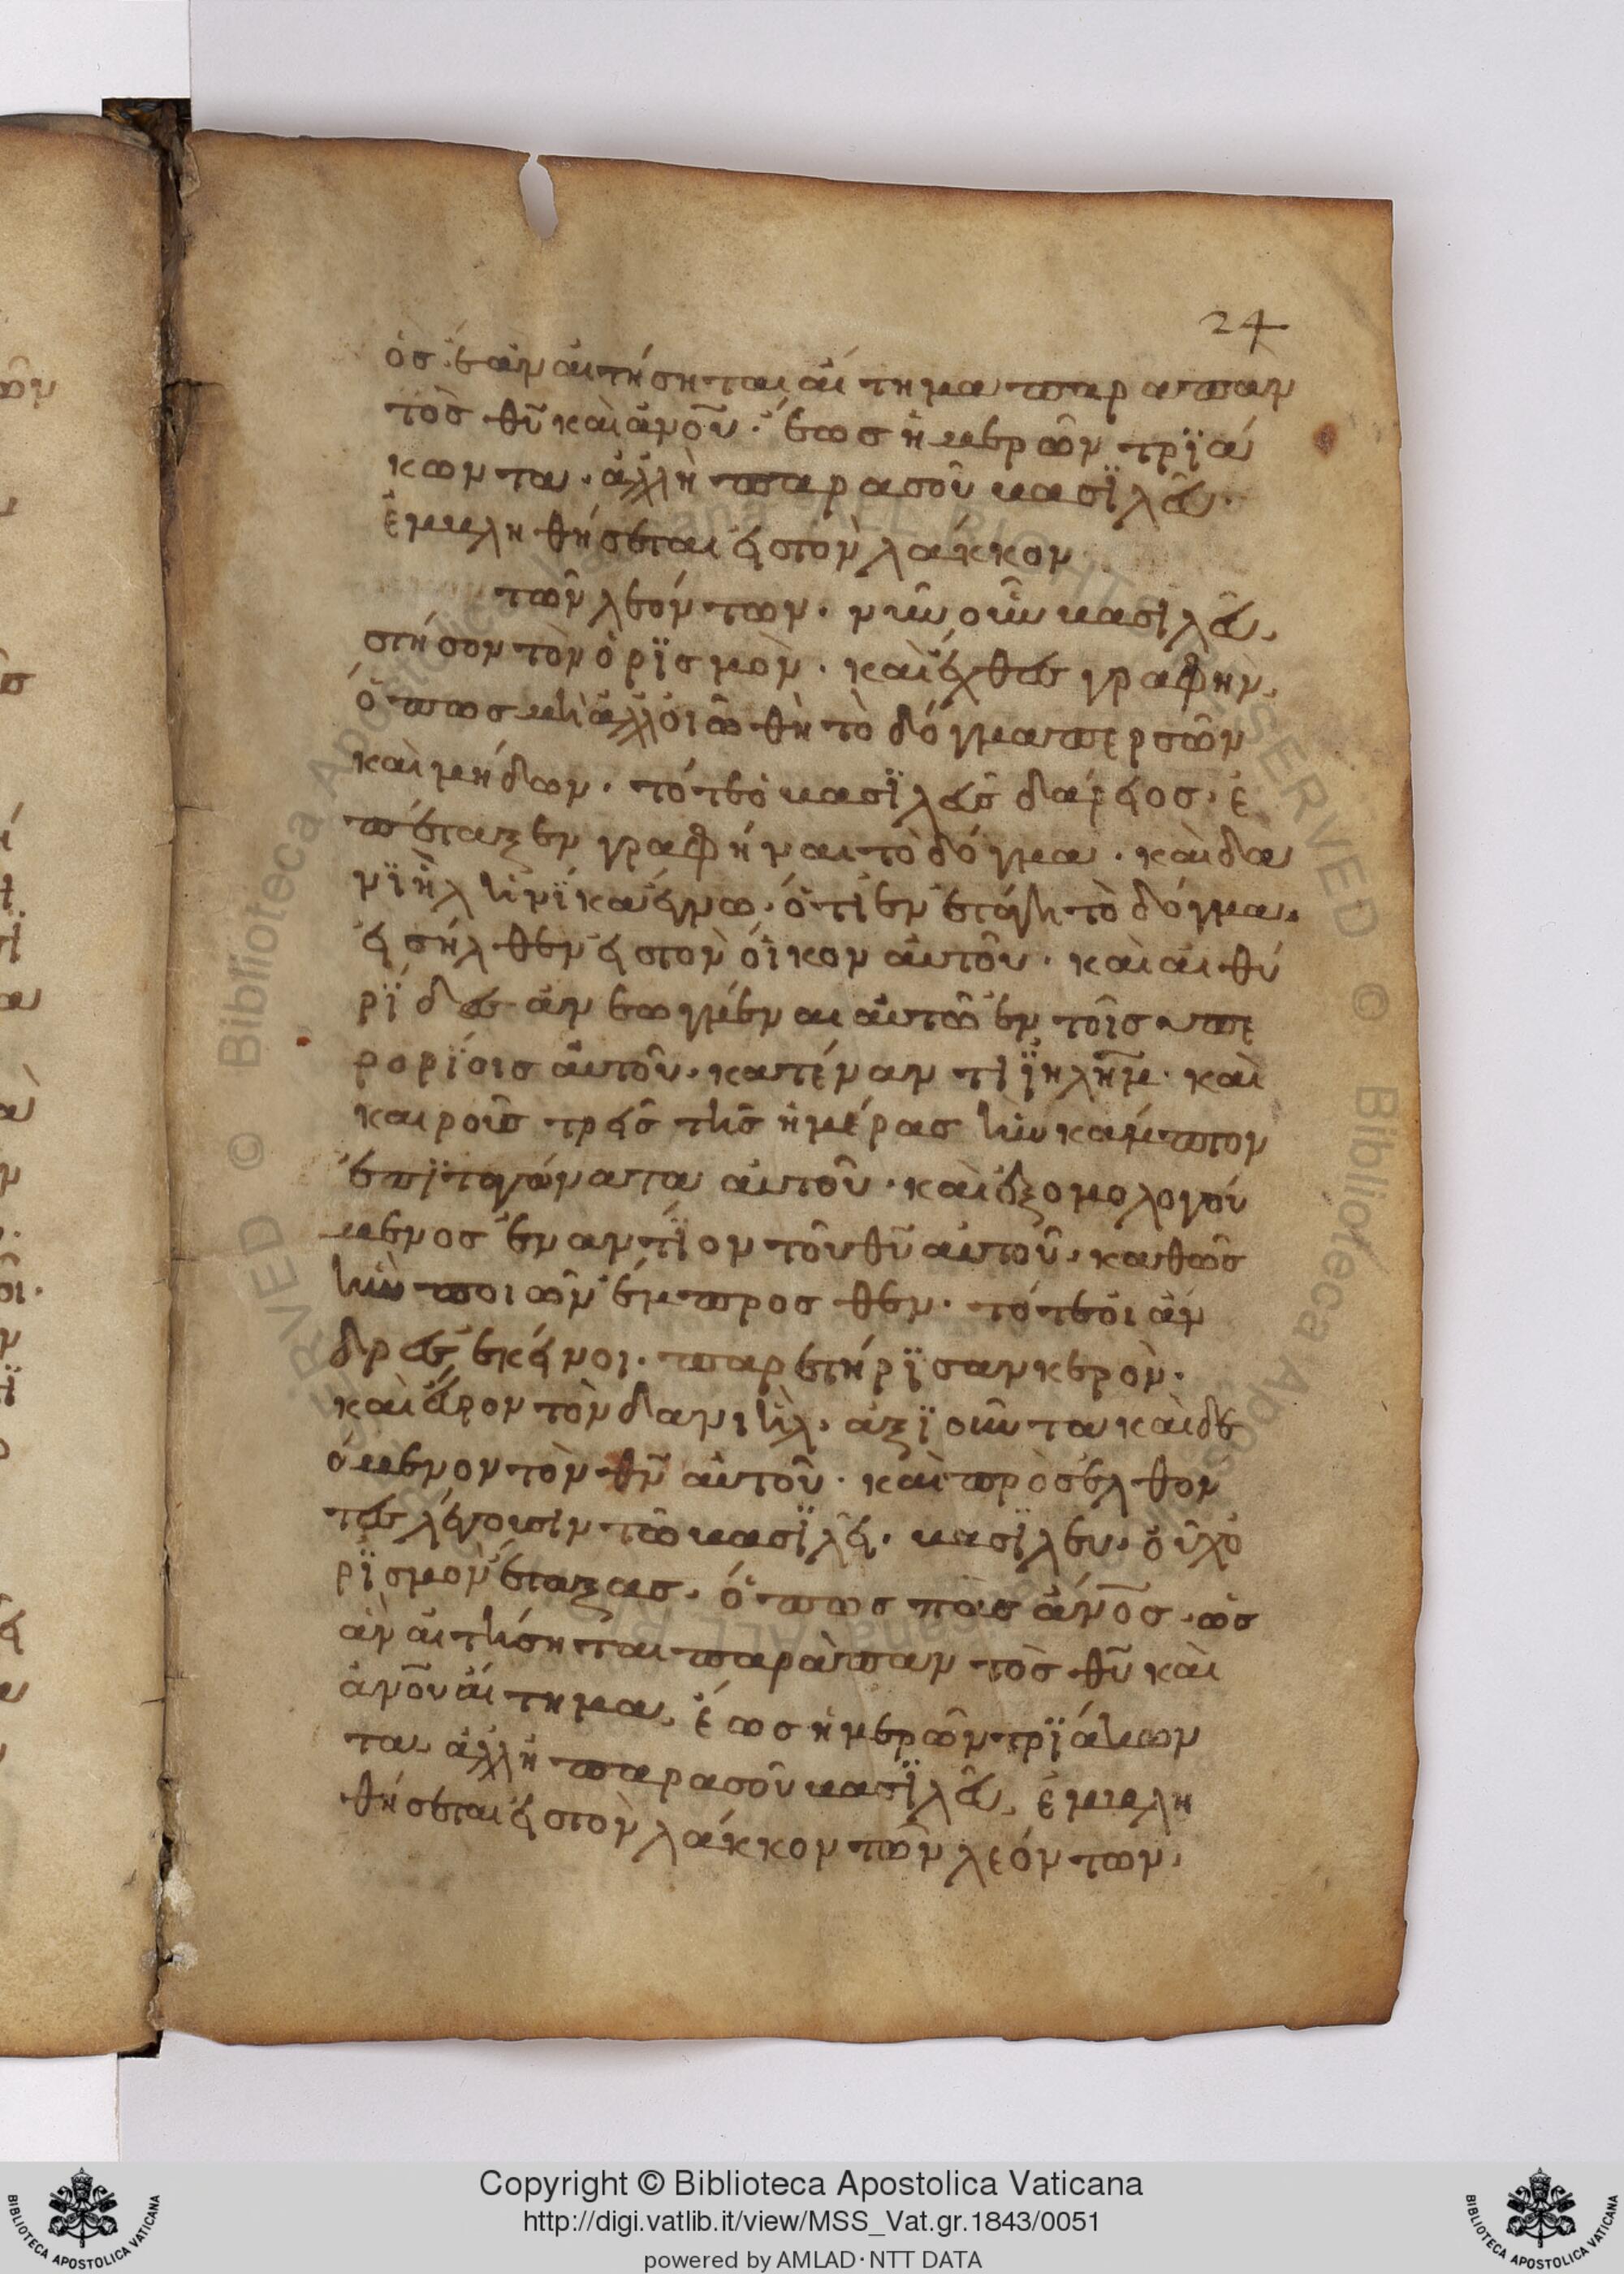 24
ὃς ἐὰν αἰτήσηται αἴτημα παρα παν
τὸς θῦ καὶ ἀνο̅υ· ἕως ἡμερῶν τρϊά
κωντα· ἀλλὴ παρα σοῦ βασϊλεῦ·
ἐμβληθήσεται εἰς τὸν λάκκον
τῶν λεόντων· νῦν οῦν βασιλεῦ,
στήσον τὸν ὁρϊσμὸν· καὶ ἔχθες γραφὴν,
ὅπως μὴ ἀλλοιῶθὴ τὸ δόγμα περσῶν
καὶ μήδων· τότε ὁ βασϊλεῦς δαρεῖος· ἐ
πέταξεν γραφήναι τὸ δόγμα· καὶ δα
νϊὴλ ἡνίκα ἔγνω· ὅτι ἐνετάγη τὸ δόγμα,
εἰσήλθεν εἰς τον οἶκον αὐτοῦ· καὶ αἱ θυ
ρΐδες ἀνεωγμέναι αὐτῶ ἐν τοῖς ὑπε
ρορΐοις αὐτοῦ· κατέναντι ϊηλη̅μ· καὶ
καιροῖς τρεῖς τῆς ἡμέρας ἦν κάμπτον
ἐπϊ τα γόνατα αὐτοῦ· καὶ ἐξομολογού
μενος ἐναντΐον τοῦ θῦ αὐτοῦ· καθῶς
ἦν ποιῶν ἔμπροσθεν· τότε οἱ ἄν
δρες ἐκείνοι· παρετήρϊσαν κερὸν·
καὶ εὗρον τὸν δανιὴλ· ἀξϊοῦντα καὶ δε
όμενον τὸν θν̅ αὐτοῦ· καὶ πρὸσελθον
τες λέγουσιν τῶ βασϊλεῖ· βασϊλευ· οὐχ ὁ
ρϊσμὸν ἔταξας· ὅπως πᾶς ἄνο̅ς· ὡς
ἀν αἰτήσηται παρὰ παντὸς θῦ καὶ
ἀνο̅υ αἴτημα· ἕως ἡμερῶν τρϊάκων
τα· ἀλλὴ παρα σοῦ βασϊλεῦ, ἐμβλη
θήσεται εἰς τὸν λάκκον τῶν λεόντων·
Copyright © Biblioteca Apostolica Vaticana
http://digi.vatlib.it/view/MSS_Vat.gr.1843/0051
powered by AMLAD·NTT DATA